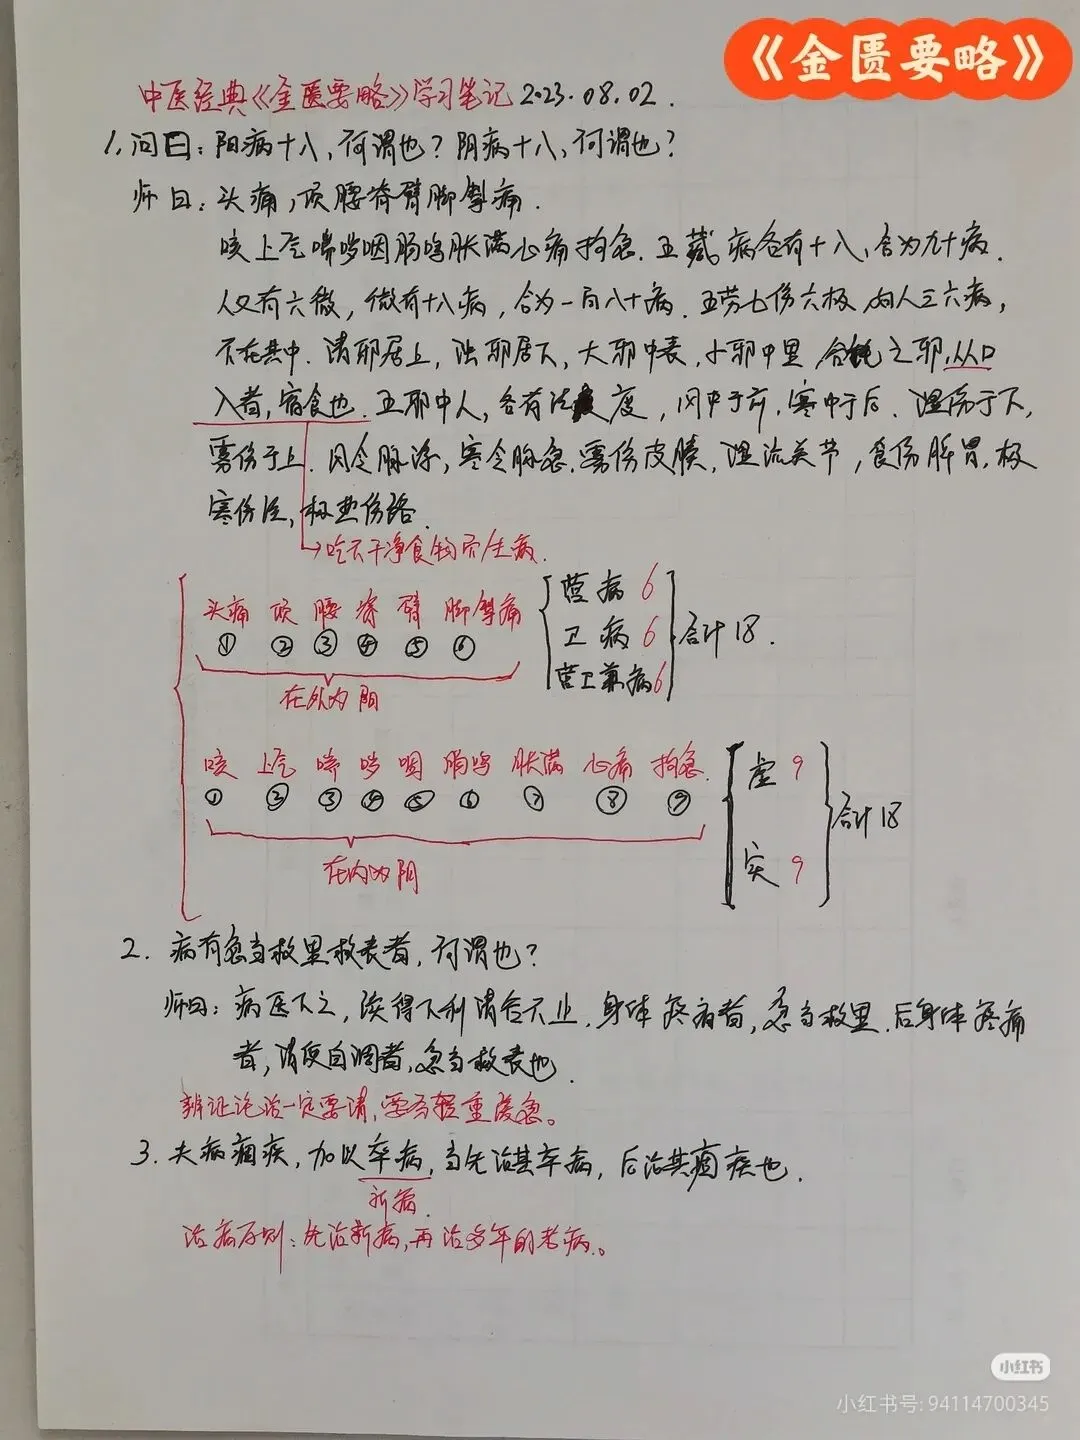 《金匮要略》
中医经典《金匮要略》学习笔记 2023.08.02.
1、问曰：阳病十八，何谓也？阴病十八，何谓也？
师曰：头痛，项腰脊臂脚掣痛.
咳上气喘哕咽肠鸣胀满心痛拘急.五藏病各有十八，合为九十病.
人又有六微，微有十八病，合为一百八十病.五劳七伤六极，妇人三六病，
不在其中.清邪居上，浊邪居下，大邪中表，小邪中里之邪，从口
入者，宿食也.五邪中人，各有法度，风中于前，寒中于后.湿伤于下，
雾伤于上.风令脉浮，寒令脉急.雾伤皮腠，湿流关节，食伤脾胃，极
寒伤经，极热伤络.
→吃不干净食物而生病.
头痛 项 腰 脊 臂 脚掣痛
① ② ③ ④ ⑤ ⑥
在外为阳
营病 6
卫病 6
营卫兼病6
合计 18.
咳 上气 喘 哕 咽 肠鸣 胀满 心痛 拘急.
① ② ③ ④ ⑤ ⑥ ⑦ ⑧ ⑨
在内为阴
虚 9
实 9
合计 18
2. 病有急当救里救表者，何谓也？
师曰：病医下之，续得下利清谷不止，身体疼痛者，急当救里.后身体疼痛
者，清便自调者，急当救表也.
辨证论治一定要清，要分轻重缓急。
3. 夫病痼疾，加以卒病，当先治其卒病，后治其痼疾也.
新病.
治病原则：先治新病，再治多年的老病。
小红书
小红书号: 94114700345